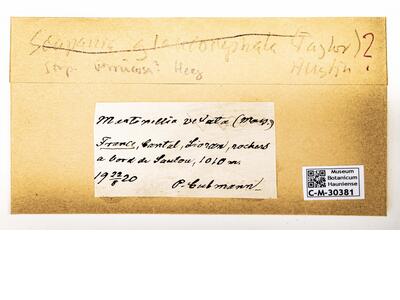 Scapania glaucocephala (Taylor) ?
Scap. verrucosa? Heeg Austin!
Martinellia
France, Cantal, Lioran, rochers
a bord de 1010 m.
19 20 P. Culmann
Museum
Botanicum
Hauniense
C-M-30381